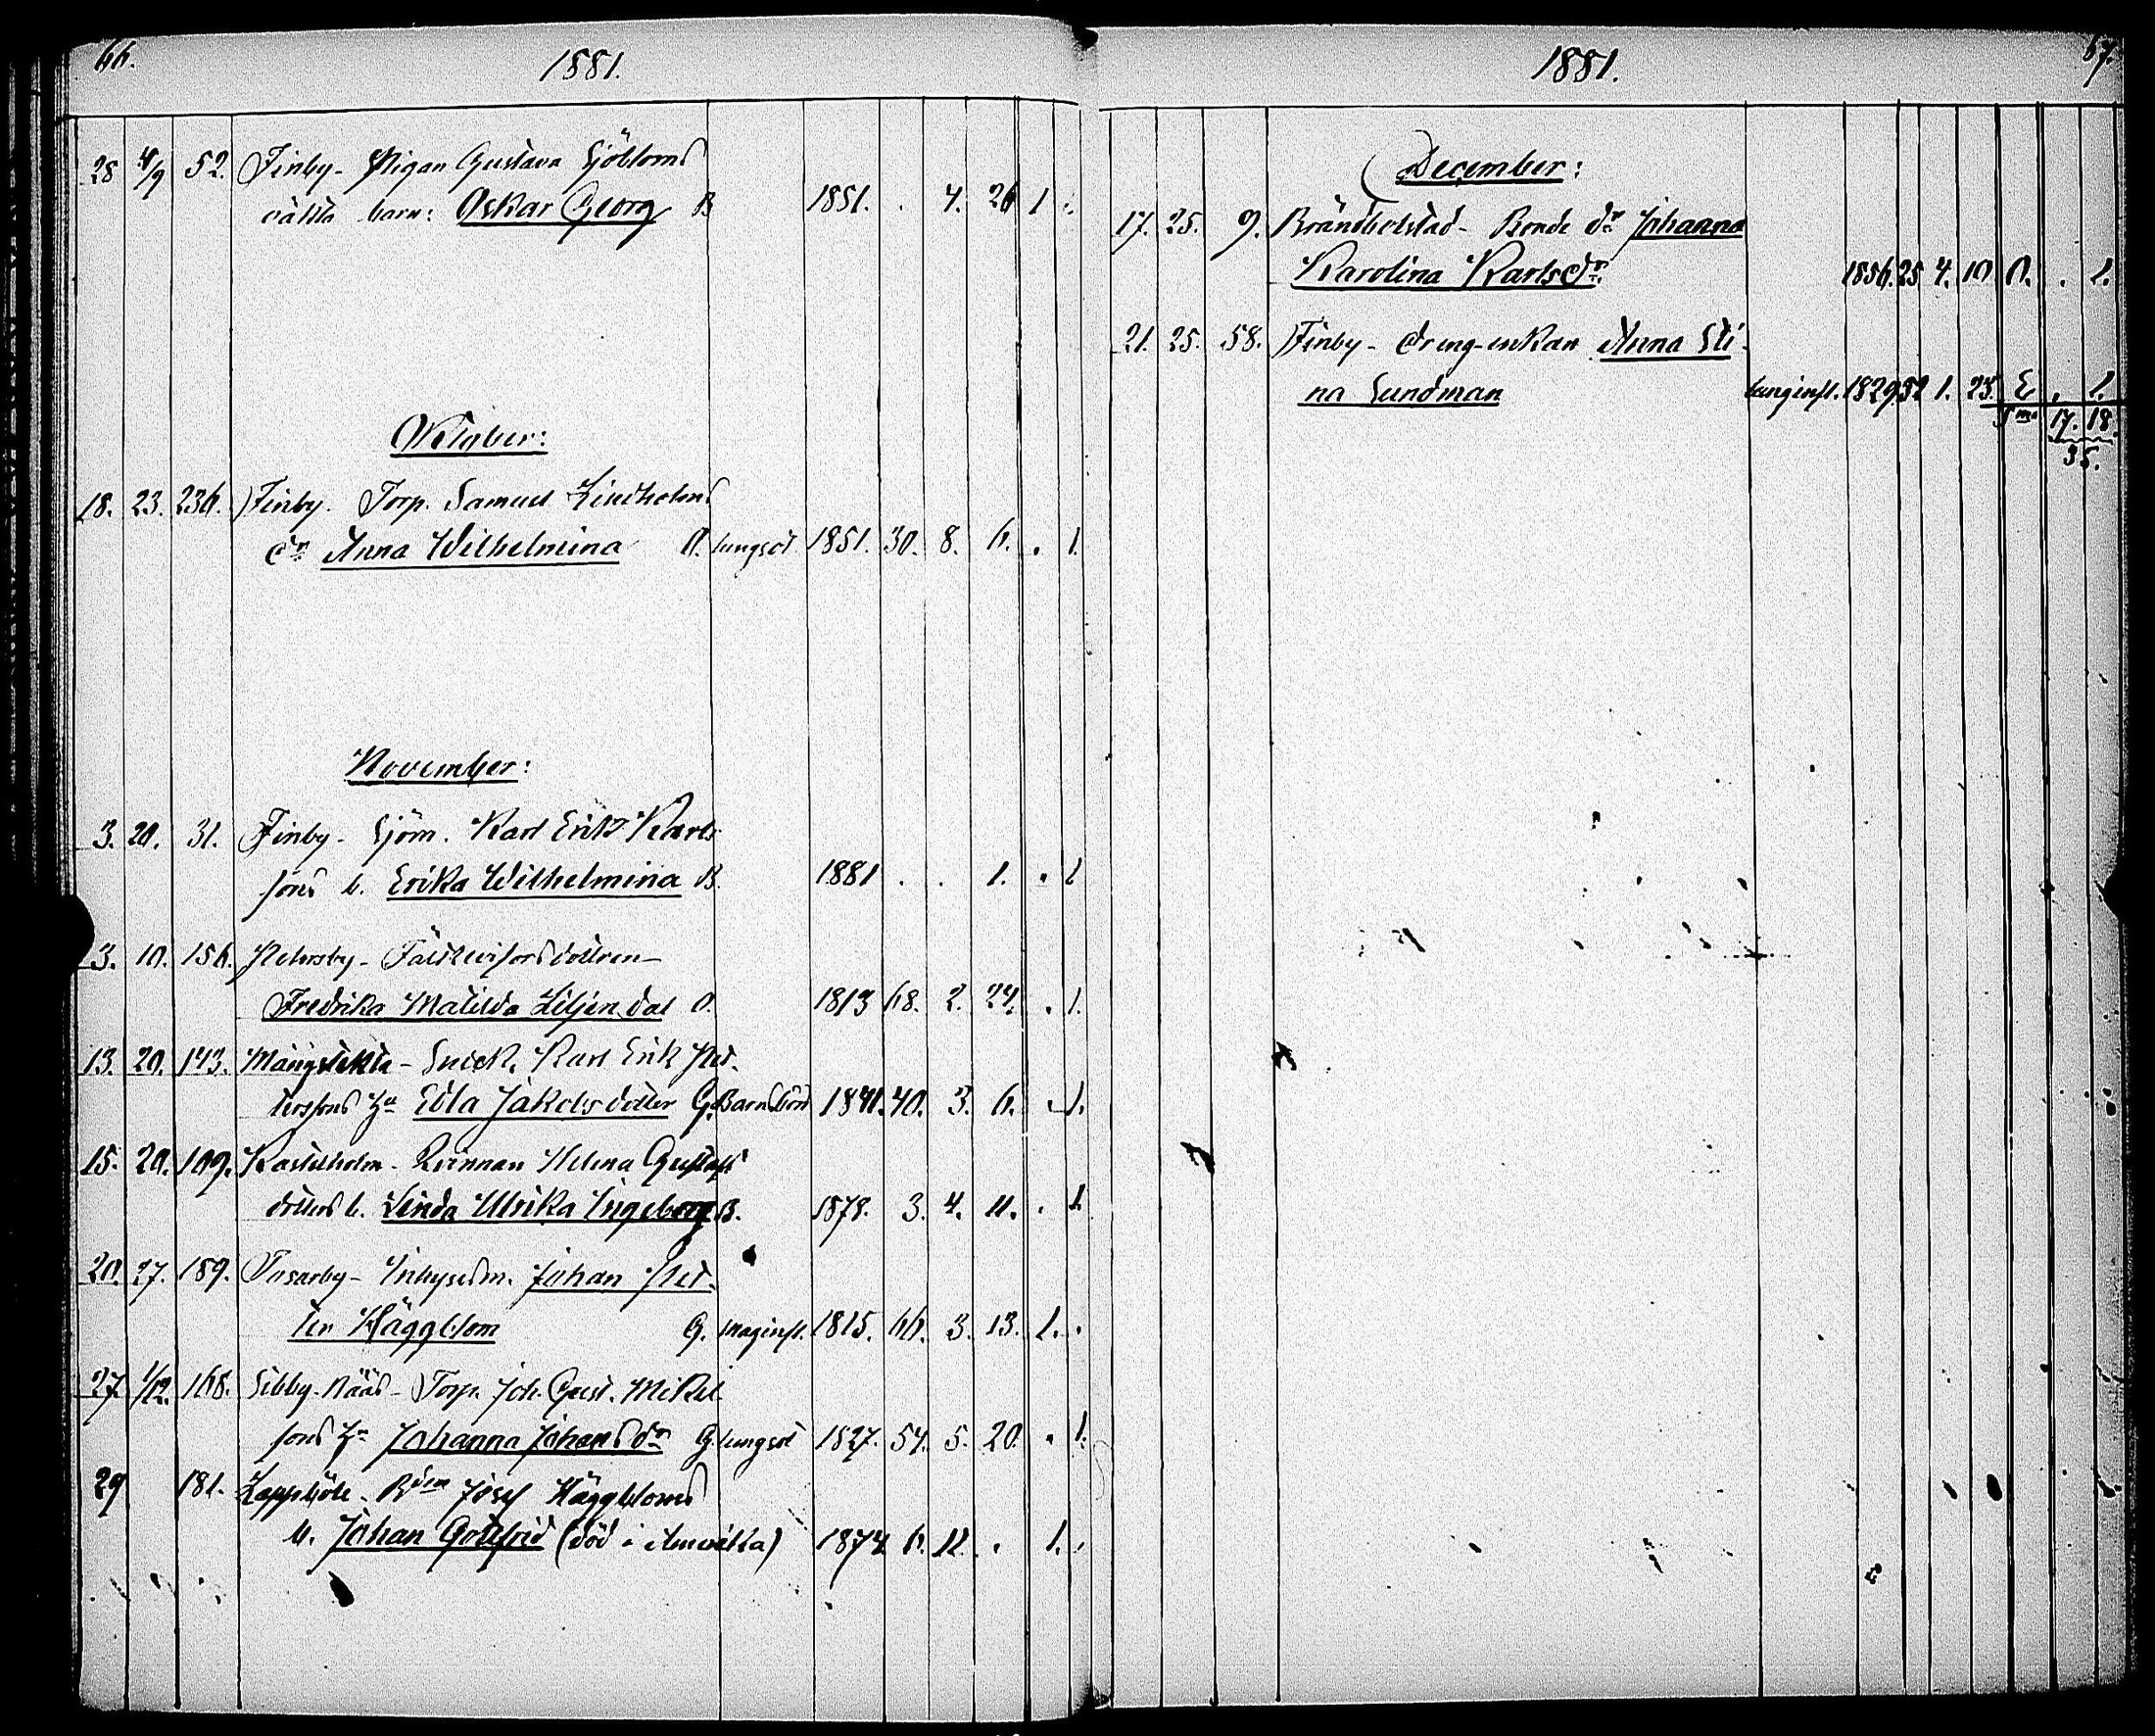 66.
1881.
28 4/9 52. Finby - Pigan Gustava Sjöbloms
oäkta barn: Oskar Georg B 1881. . 4. 26 1 .
Oktober:
18. 23. 236. Finby. Torp. Samuel Lindholms
dr Anna Wilhelmina O. lungsot 1851. 30. 8. 6. . 1.
November:
3. 20. 31. Finby - Sjöm. Karl Erik Karls
sons b. Erika Wilhelmina B. 1881 . . 1. . 1
3. 10. 156.
Fredrika Matilda Liljendal O. 1813 68. 2. 24. . 1.
13. 20. 143. Mångstekta - Snick. Karl Erik Pet-
terssons hu Edla Jakobsdotter G. Barnsbörd 1841. 40. 3. 6. . 1.
15. 20. 109. Kastelholm - Qvinnan Helena Gustafs
dotters b. Linda Ulrika Ingeborg B. 1878. 3. 4. 11. . 1
20. 27. 189. Tosarby - Inhysesm. Johan Pet-
ter Häggblom G. maginfl. 1815. 66. 3. 13. 1. .
27 1/12. 168. Sibby-Nääs - Torp. Joh. Gust. Mikels
sons hu Johanna Johansdr G. lungsot 1827. 54. 5. 20. . 1.
29 181. Lappböle - Bdm Josef Häggbloms
b. Johan Gottfrid (död i Amerikka) 1874 6. 11. . 1. .
1881.
67.
December:
17. 25. 9. Brändbolstad - Bonde dr Johanna
Karolina Karlsdr. 1856. 25 4. 10 O. . 1.
21. 25. 58. Finby - dreng-enkan Anna Sti-
na Sundman lunginfl. 1829. 52 1. 23. E . 1.
Sma 17. 18.
35.